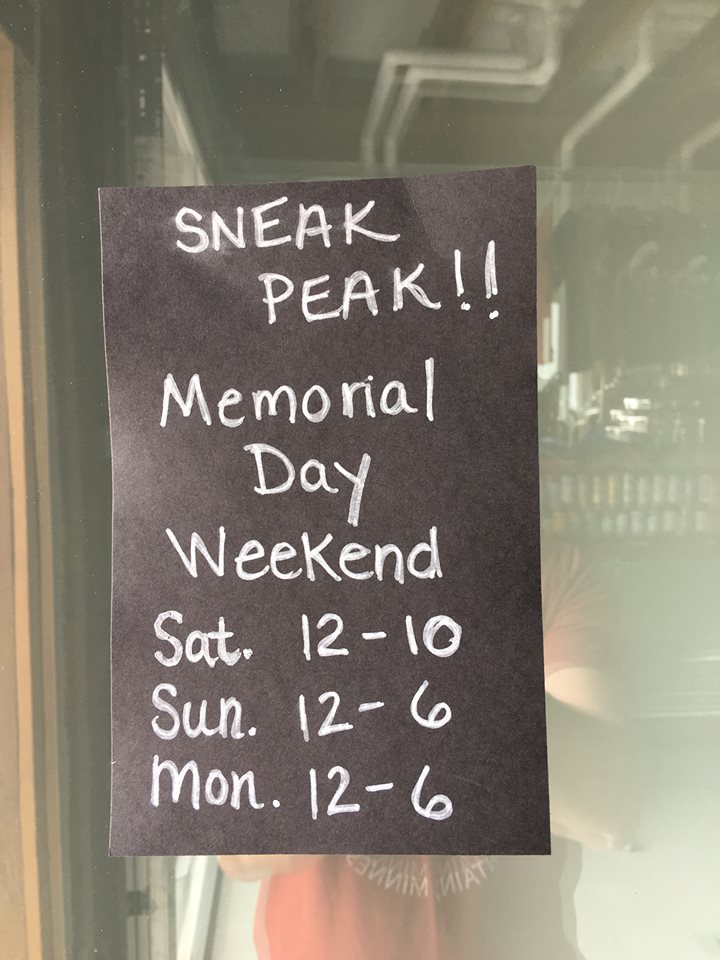 SNEAK
PEAK!!
Memorial
Day
Weekend
Sat. 12-10
Sun. 12-6
Mon. 12-6